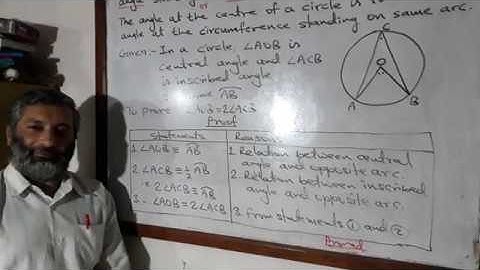 or
The angle at the centre of a circle is
angle at the circumference standing on same arc.
Given:- In a circle, ∠AOB is
central angle and ∠ACB
is inscribed angle
AB
To prove ∠AOB = 2∠ACB
Proof
Statements
Reasons
1. ∠AOB ≡ AB
1. Relation between central
angle and opposite arc.
2. ∠ACB ≡ ½ AB
2. Relation between inscribed
∴ 2∠ACB ≡ AB
angle and opposite arc.
3. ∠AOB = 2∠ACB
3. From statements ① and ②
Proved
C
O
A
B